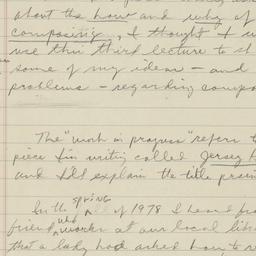 about the how and why of
composing, I thought I w
use this third lecture to sh
some of my ideas – and
problems – regarding compo
The "work in progress" refers t
piece I'm writing called Jersey H
and I'll explain the title prese
In the spring of 1978 I heard fro
friend who works at our local lib
that a lady had asked how to r